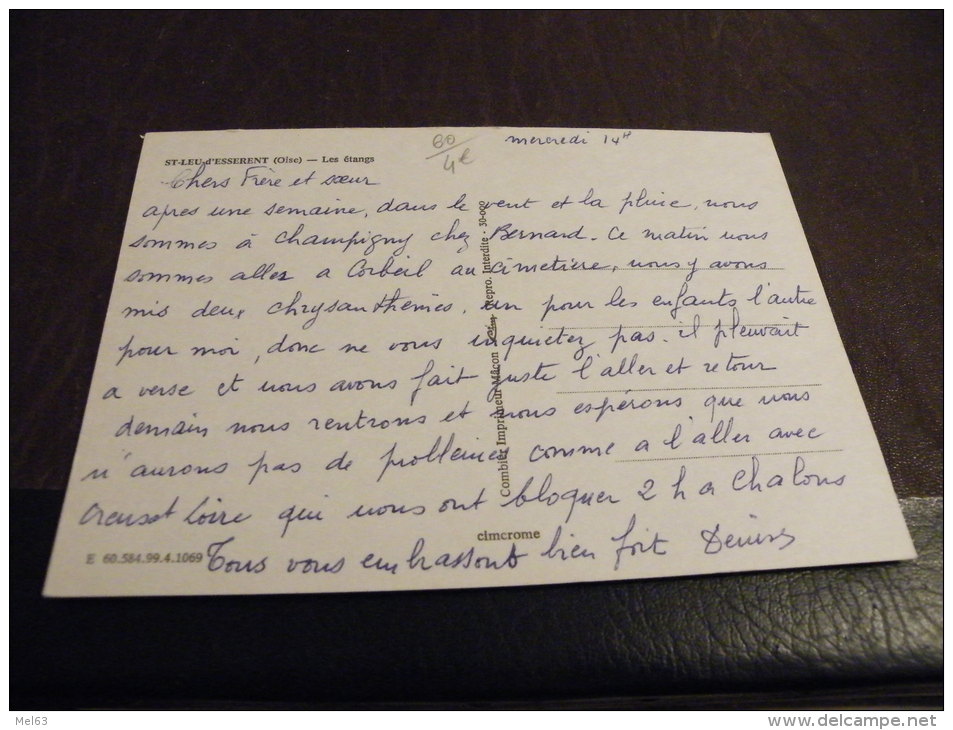 mercredi 14H
60/4€
ST-LEU-d'ESSERENT (Oise) — Les étangs
Chers Frère et sœur
apres une semaine, dans le vent et la pluie, nous
sommes à Champigny chez Bernard. Ce matin nous
sommes allez a Corbeil au cimetière, nous y avons
mis deux chrysanthèmes. un pour les enfants l'autre
pour moi, donc ne vous inquietez pas. il pleuvait
a verse et nous avons fait juste l'aller et retour
demain nous rentrons et nous espérons que nous
n'aurons pas de problemes comme a l'aller avec
Creusot Loire qui nous ont bloquer 2 h a Chalons
Tous vous embrassont bien fort Denise
Combier Imprimeur Mâcon Repro. Interdite - 30-000
cimcrome
E 60.584.99.4.1069
Mel63
www.delcampe.net